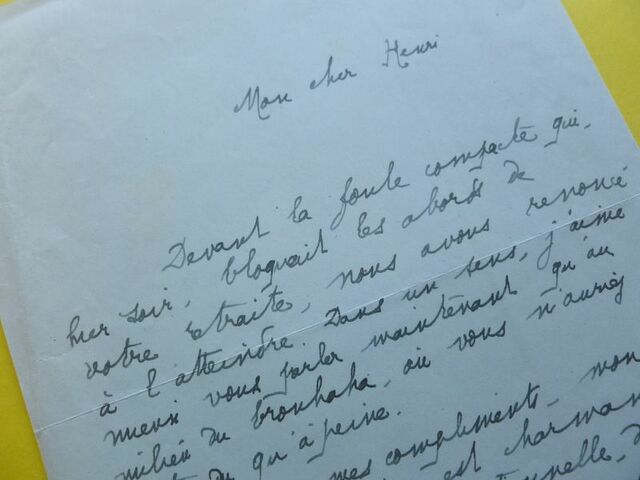 Mon cher Henri
Devant la foule compacte qui,
hier soir, bloquait les abords de
votre retraite, nous avons renoncé
à l'atteindre. Dans un sens, j'aime
mieux vous parler maintenant qu'au
milieu du brouhaha, où vous n'auriez
qu'à peine.
mes compliments - mon
est charman